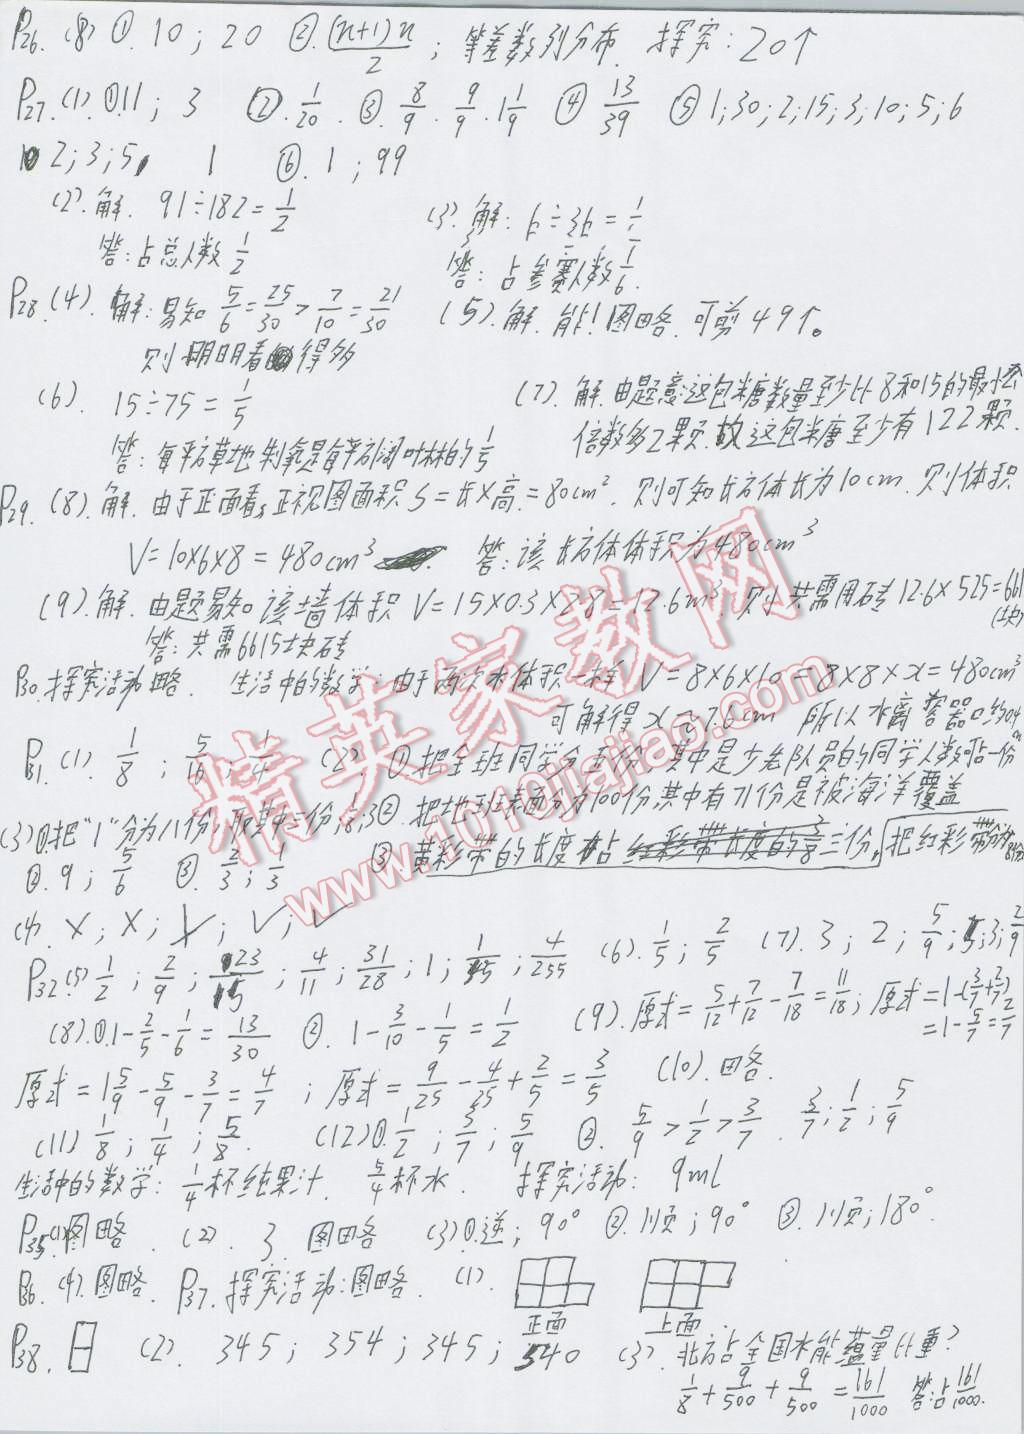 P26. (8) ①. 10 ; 20 ②. (n+1)n/2 ; 等差数列分布. 探究: 20个
P27. (1). ①. 11 ; 3 ②. 1/20 . ③. 8/9 . 9/9 . 1 1/9 ④ 13/39 ⑤ 1;30;2;15;3;10;5;6
2;3;5 1 ⑥. 1 ; 99
(2). 解. 91÷182=1/2 (3). 解:
答:占总人数 1/2 答:占参赛人数 1/6.
P28. (4). 解:易知 5/6=25/30>7/10=21/30 (5). 解. 能!图略. 可剪49个。
则明明看得多
(6). 15÷75=1/5 (7). 解.由题意这包糖数量至少比8和15的最小公
倍数多2颗.故这包糖至少有122颗.
答:每平方草地制氧是每平方阔叶林的1/5
P29. (8). 解. 由于正面看,正视图面积S=长×高=80cm². 则可知长方体长为10cm. 则体积
V=10×6×8=480cm³ 答:该长方体体积为480cm³
(9). 解. 由题易知该墙体积 V=15×0.3×2.8=12.6m³. 则共需用砖12.6×525=661
(块)
答:共需6615块砖
P30. 探究活动略. 生活中的数学:由于两次水体积一样 V=8×6×10=8×8×x=480cm³
可解得 x≈7.6cm 所以水离容器口约
P31. (1). 1/8 ; 5/16 ; 1/4 (2). ①.把全班同学分五份,其中是少先队员的同学人数占一份
②. 把地球表面分为100份,其中有71份是被海洋覆盖
(3)①.把"1"分为八份,取其中三份;8;3
②. 9 ; 5/6 ③. 2/3 ; 1/3 ③ 黄彩带的长度占三份,把红彩带分为8份
(4). × ; × ; ; √ ; √
P32. (5) 1/2 ; 2/9 ; 23/15 ; 4/11 ; 31/28 ; 1 ; ; 4/255 (6). 1/5 ; 2/5 (7). 3 ; 2 ; 5/9 ; 5;3;2/9
(8). ①.1-2/5-1/6=13/30 ②. 1-3/10-1/5=1/2 (9). 原式=5/12+7/12-7/18=11/18; 原式=1-(3/7+2/7)
=1-5/7=2/7
原式=1 5/9-5/9-3/7=4/7 ; 原式=9/25-4/25+2/5=3/5 (10). 图略.
(11) 1/8 ; 1/4 ; 5/8. (12)①. 1/2 ; 3/7 ; 5/9 ②. 5/9>1/2>3/7 . 3/7 ; 1/2 ; 5/9
生活中的数学: 1/4杯纯果汁. 5/4杯水. 探究活动: 9ml
P35. (1)图略. (2). 3. 图略 (3)①.逆; 90° ②.顺; 90° ③.顺;180°.
P36. (4).图略. P37. 探究活动:图略. (1).
正面 上面
P38. (2). 345 ; 354 ; 345 ; 540 (3). 北方占全国水能蕴量比重?
1/8+9/500+9/500=161/1000 答:占161/1000.
精英家教网
www.1010jiajiao.com